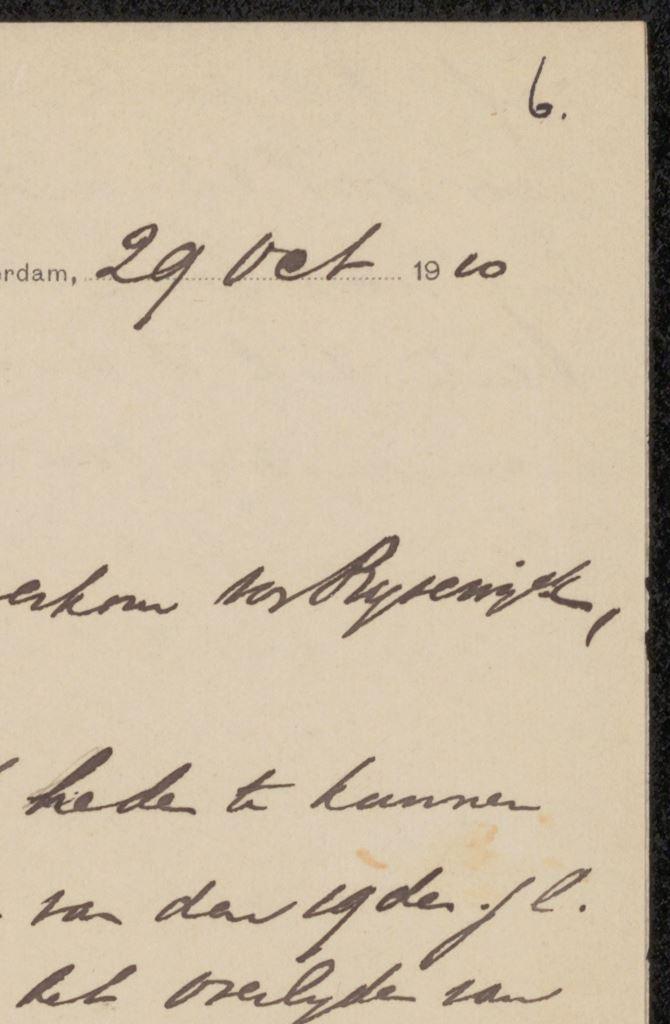 6.
erdam, 29 Oct 1910
erkom van Rysewijk,
heden te kunnen
van den 19den jl.
het overlijden van